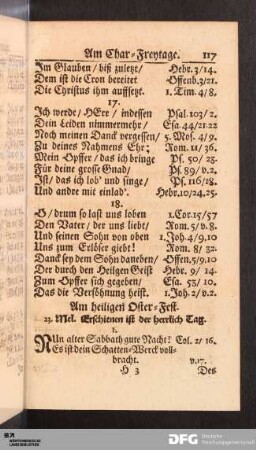 Am Char-Freytage. 117
Im Glauben/ biß zuletzt/ Hebr. 3/14.
Dem ist die Cron bereitet Offenb. 3/21.
Die Christus ihm auffsetzt. 1. Tim. 4/8.
17.
Ich werde/ HErr/ indessen Psal. 103/2.
Dein Leiden nimmermehr/ Esa. 44/21.22
Noch meinen Danck vergessen/ 5. Mos. 4/9.
Zu deines Nahmens Ehr; Rom. 11/36.
Mein Opffer/ das ich bringe Ps. 50/23.
Für deine grosse Gnad/ Ps. 89/v.2.
Ist/ das ich lob' und singe/ Ps. 116/18.
Und andre mit einlad'. Hebr. 10/24.25.
18.
O/ drum so last uns loben 1. Cor. 15/57
Den Vater/ der uns liebt/ Rom. 5/v.8.
Und seinen Sohn von oben 1. Joh. 4/9.10
Uns zum Erlöser giebt! Rom. 8/32.
Danck sey dem Sohn daneben/ Offen. 5/9.10
Der durch den Heilgen Geist Hebr. 9/14.
Zum Opffer sich gegeben/ Esa. 53/10.
Das die Versöhnung heist. 1. Joh. 2/v.2.
Am heiligen Oster-Fest.
23. Mel. Erschienen ist der herrlich Tag.
1.
NUn alter Sabbath gute Nacht! Col. 2/16.
Es ist dein Schatten-Werck voll-
bracht. v.17.
H 3 Des
DFG Deutsche
Forschungsgemeinschaft